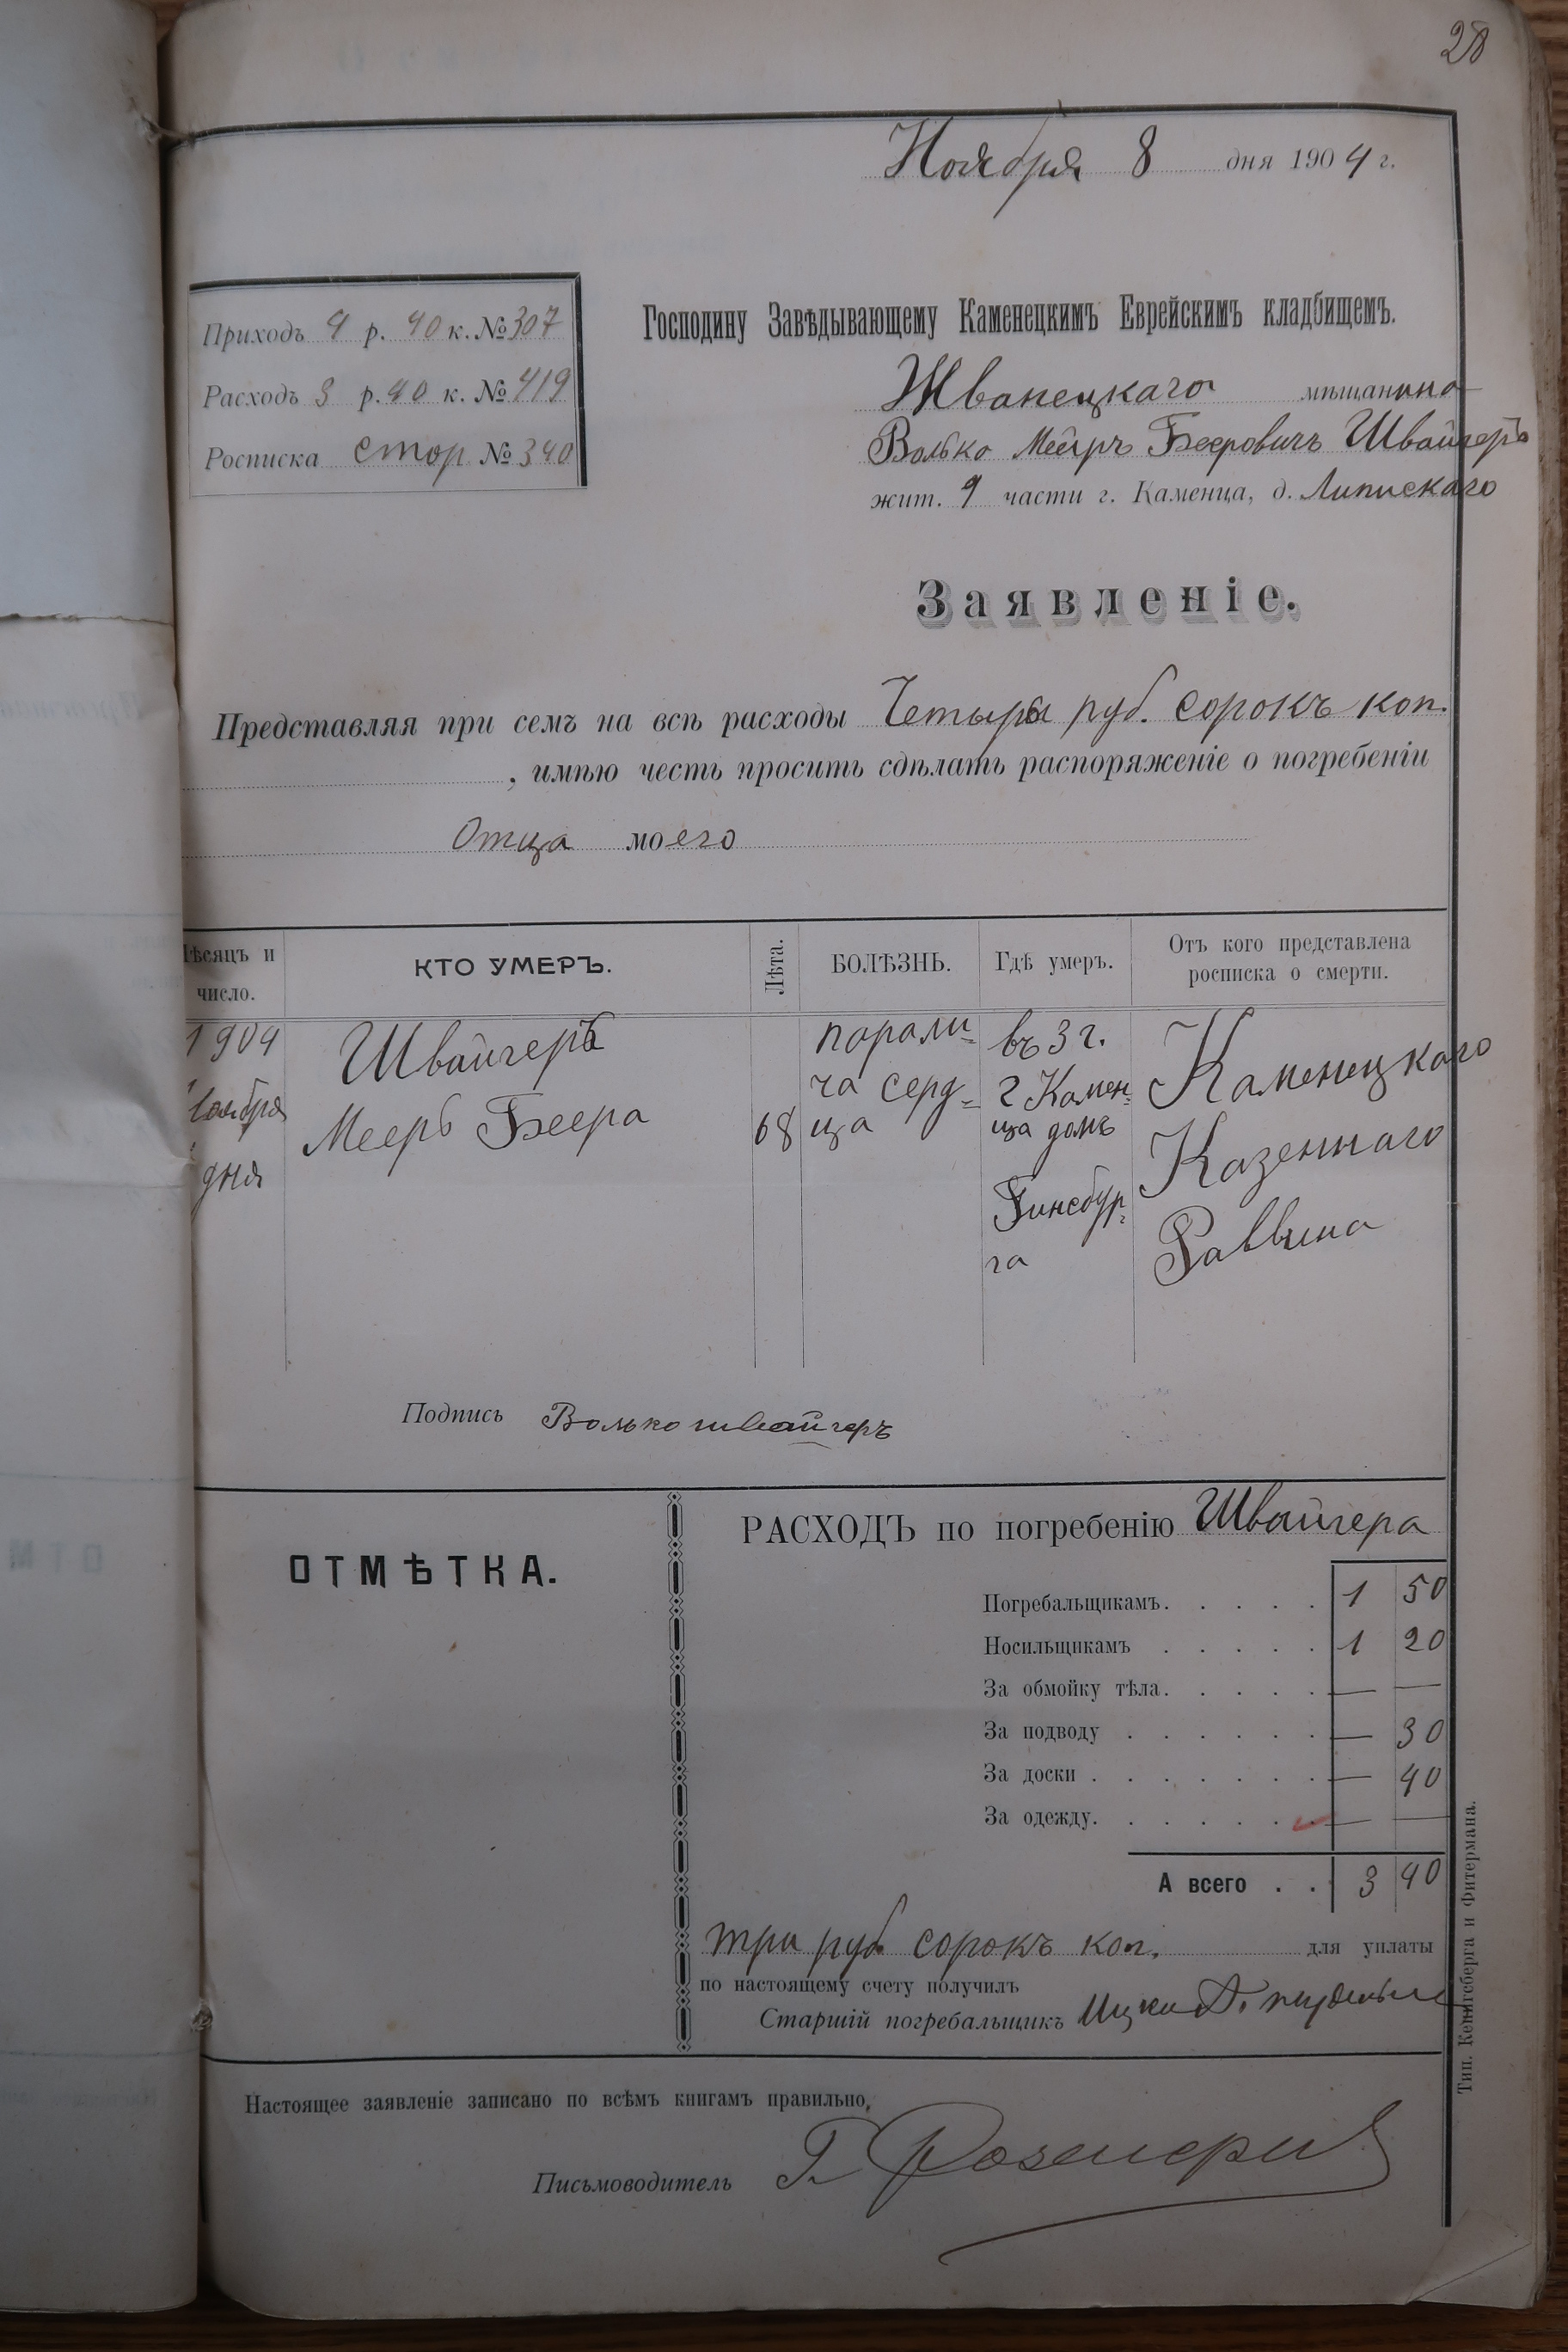 28
Ноября 8 дня 1904 г.
Приходъ 4 р. 40 к. № 307
Расходъ 3 р. 40 к. № 419
Росписка стор № 340
Господину Завѣдывающему Каменецкимъ Еврейскимъ кладбищемъ.
Жванецкаго мѣщанина
Волько Меиръ Бееровичъ Швайгеръ
жит. 4 части г. Каменца, д. Липискаго
Заявленіе.
Представляя при семъ на всѣ расходы Четыры руб. сорокъ коп.
, имѣю честь просить сдѣлать распоряженіе о погребеніи
Отца моего
Мѣсяцъ и число.
КТО УМЕРЪ.
Лѣта.
БОЛѢЗНЬ.
Гдѣ умеръ.
Отъ кого представлена росписка о смерти.
1904
Ноября
дня
Швайгеръ
Мееръ Беера
68
парали-
ча серд-
ца
въ 3 г.
г Камен-
ца домъ
Гинсбур-
га
Каменецкаго
Казеннаго
Раввина
Подпись Волько швайгеръ
ОТМѢТКА.
РАСХОДЪ по погребенію Швайгера
Погребальщикамъ. . . . . 1 50
Носильщикамъ . . . . . 1 20
За обмойку тѣла. . . . . — —
За подводу . . . . . . — 30
За доски . . . . . . . — 40
За одежду. . . . . . . — —
А всего . . 3 40
три руб. сорокъ коп. для уплаты
по настоящему счету получилъ
Старшій погребальщикъ Ицко
Настоящее заявленіе записано по всѣмъ книгамъ правильно,
Письмоводитель Г.
Тип. Кенигсберга и Фитермана.